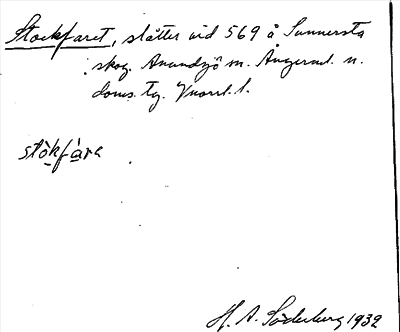 Stockfaret, slåtter vid 569 å Sunnersta
skog. Anundsjö m. Ångerml. n.
doms. tg. Vnorrl. l.
stòkfàra
H. A. Söderberg 1932